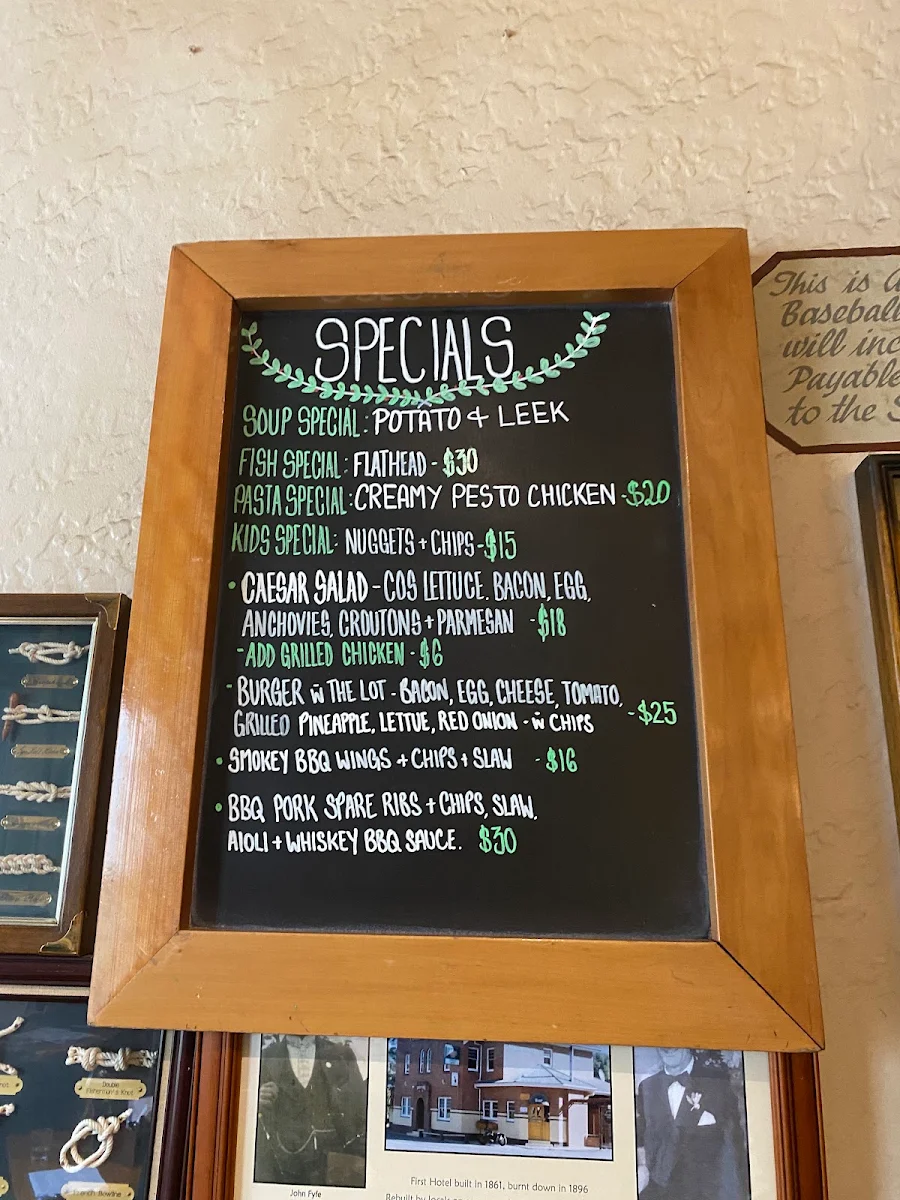 SPECIALS
SOUP SPECIAL: POTATO + LEEK
FISH SPECIAL: FLATHEAD - $30
PASTA SPECIAL: CREAMY PESTO CHICKEN - $20
KIDS SPECIAL: NUGGETS + CHIPS - $15
• CAESAR SALAD - COS LETTUCE, BACON, EGG,
ANCHOVIES, CROUTONS + PARMESAN - $18
- ADD GRILLED CHICKEN - $6
- BURGER w THE LOT - BACON, EGG, CHEESE, TOMATO,
GRILLED PINEAPPLE, LETTUE, RED ONION - w CHIPS - $25
• SMOKEY BBQ WINGS + CHIPS + SLAW - $16
• BBQ PORK SPARE RIBS + CHIPS, SLAW,
AIOLI + WHISKEY BBQ SAUCE. $30
This is a
Baseball
will inc
Payable
to the S
Double
Fisherman's Knot
French Bowline
John Fyfe
First Hotel built in 1861, burnt down in 1896
Rebuilt by locals